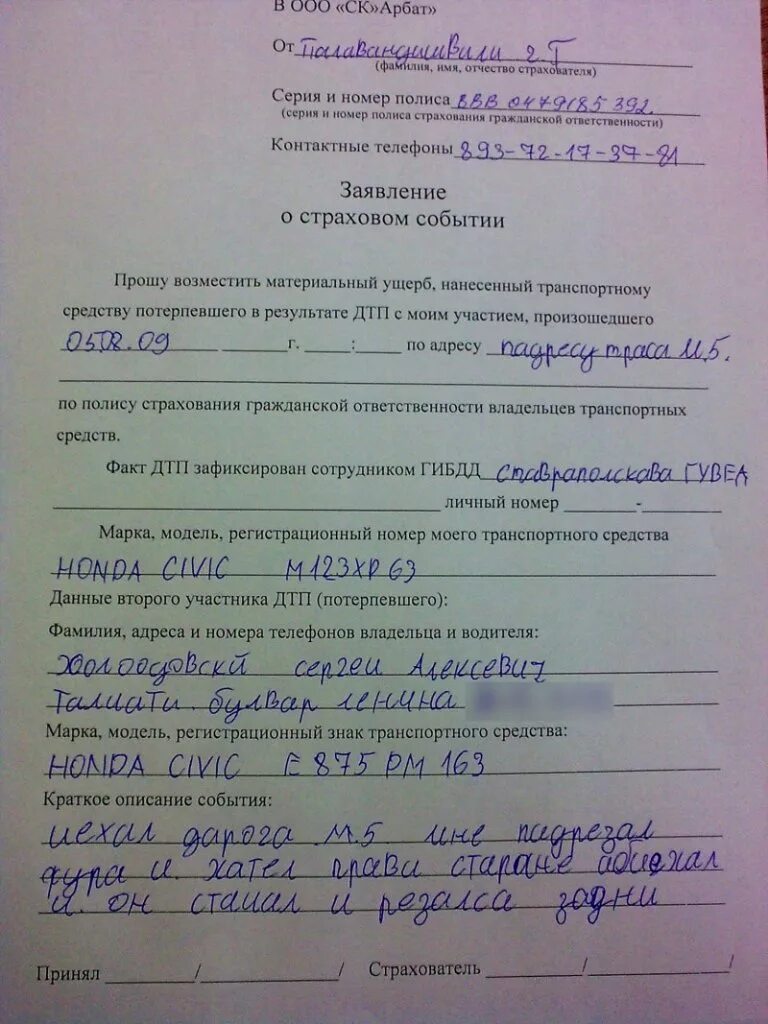 В ООО «СК»Арбат»
От Палавандишвили г. Г
(фамилия, имя, отчество страхователя)
Серия и номер полиса ВВВ 0479185392.
(серия и номер полиса страхования гражданской ответственности)
Контактные телефоны 893-72-17-37-81
Заявление
о страховом событии
Прошу возместить материальный ущерб, нанесенный транспортному
средству потерпевшего в результате ДТП с моим участием, произошедшего
05.08.09 г. : по адресу падресу траса М.5.
по полису страхования гражданской ответственности владельцев транспортных
средств.
Факт ДТП зафиксирован сотрудником ГИБДД ставраполскава ГУВЕД
личный номер -
Марка, модель, регистрационный номер моего транспортного средства
HONDA CIVIC М123ХР 63
Данные второго участника ДТП (потерпевшего):
Фамилия, адреса и номера телефонов владельца и водителя:
сергеи Алексевич
Талиати булвар ленина
Марка, модель, регистрационный знак транспортного средства:
HONDA CIVIC Е 875 РМ 163
Краткое описание события:
иехал дарога М.5 мне падрезал
фура и хател прави старане абиехал
и. он стаиал и резалса задни
Принял / / Страхователь / /